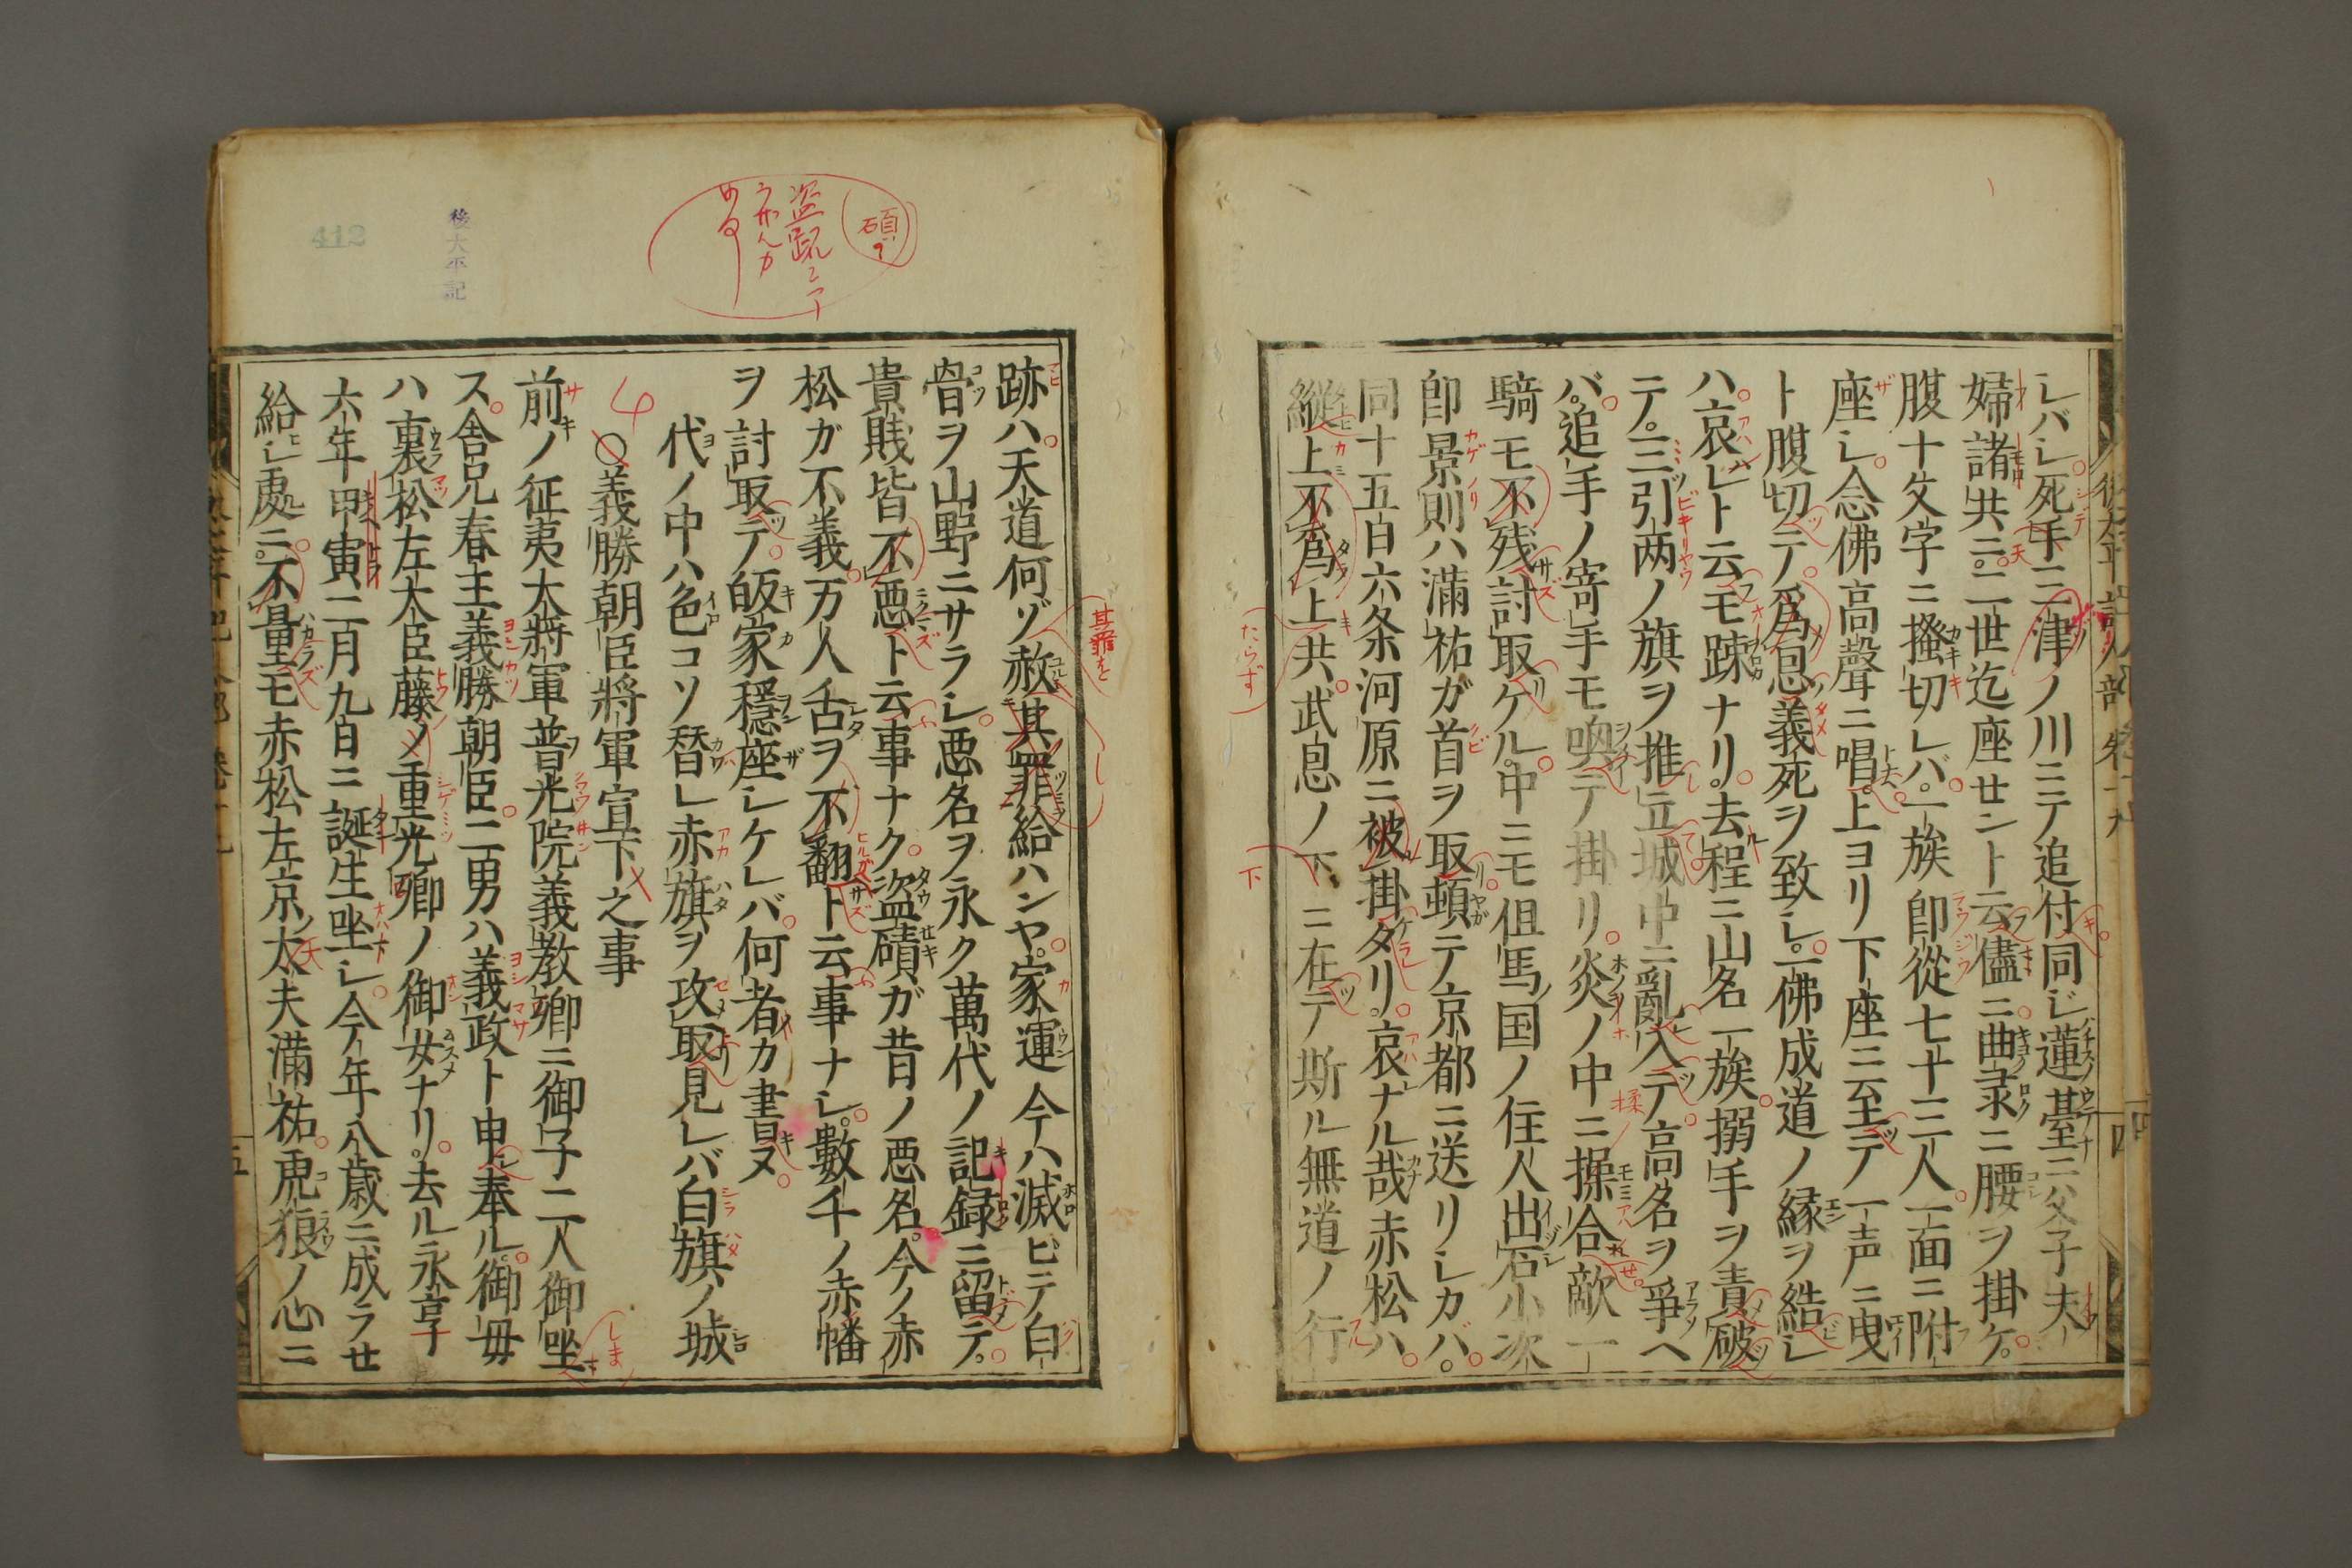 シバシ死手三津ノ川ニテ追付同ジ蓮臺ニ父子夫
婦諸共ニ二世迄座セント云儘ニ曲录ニ腰ヲ掛ケ
腹十文字ニ搔切レバ一族郎從七十三人一面ニ附
座シ念佛高聲ニ唱上ヨリ下座ニ至テ一声ニ曳
ト腹切テ為君義死ヲ致シ一佛成道ノ縁ヲ結シ
ハ哀レト云モ踈ナリ去程ニ山名一族搦手ヲ責破
テ三引両ノ旗ヲ推立城中ニ亂入テ高名ヲ爭ヘ
バ追手ノ寄手モ喚テ掛リ炎ノ中ニ操合敵一
騎モ不残討取ケル中ニモ但馬国ノ住人出石小次
郎景則ハ滿祐ガ首ヲ取頓テ京都ニ送リシカバ
同十五日六条河原ニ被掛タリ哀ナル哉赤松ハ
縱上不為上共武臣ノ下ニ在テ斯ル無道ノ行
跡ハ天道何ゾ赦其罪給ハンヤ家運今ハ滅ビテ白
骨ヲ山野ニサラシ悪名ヲ永ク萬代ノ記録ニ留テ
貴賤皆不悪ト云事ナク盗磧ガ昔ノ悪名今ノ赤
松ガ不義万人舌ヲ不翻ト云事ナシ數千ノ赤幡
ヲ討取テ皈家穩座シケレバ何者カ書ヌ
代ノ中ハ色コソ替レ赤旗ヲ攻取見レバ白旗ノ城
○義勝朝臣將軍宣下之事
前ノ征夷大將軍普光院義教卿ニ御子二人御坐
ス舎兄春王義勝朝臣二男ハ義政ト申奉ル御母
ハ裏松左大臣藤ノ重光卿ノ御女ナリ去ル永享
六年甲寅二月九日ニ誕生坐シ今年八歳ニ成ラセ
給シ處ニ不量モ赤松左京太夫滿祐虎狼ノ心ニ
後太平記
412
其罪を
たらず
下